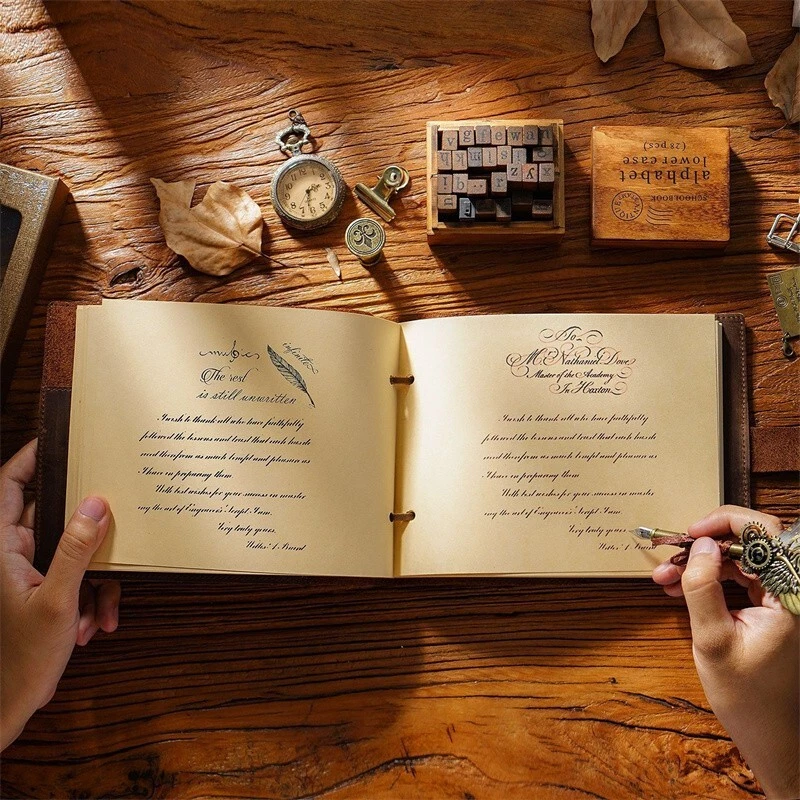 v g f e w a n
r z y x
alphabet
lower case
(28 pcs)
SCHOOLBOOK
infinite
The rest
is still unwritten
I wish to thank all who have faithfully
followed the lessons and trust that each has de
rived therefrom as much benefit and pleasure as
I have in preparing them.
With best wishes for your success in master
ing the art of Engrosser's Script I am,
Very truly yours,
To
Mr. Nathaniel Dove
Master of the Academy
In Hoxton
I wish to thank all who have faithfully
followed the lessons and trust that each has de
rived therefrom as much benefit and pleasure as
I have in preparing them.
With best wishes for your success in master
ing the art of Engrosser's Script I am,
Very truly yours,